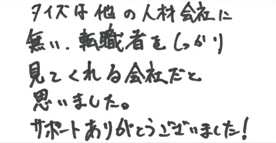 タイズは他の人材会社に
無い、転職者をしっかり
見てくれる会社だと
思いました。
サポートありがとうございました!